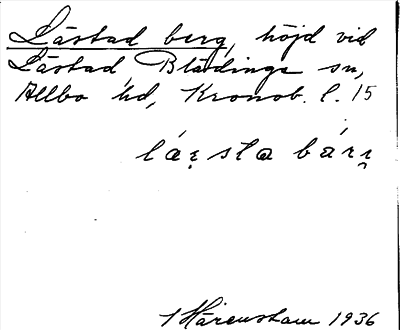 Lästad berg, höjd vid
Lästad, Blädinge sn,
Allbo hd, Kronob. l. 15
Härenstam 1936